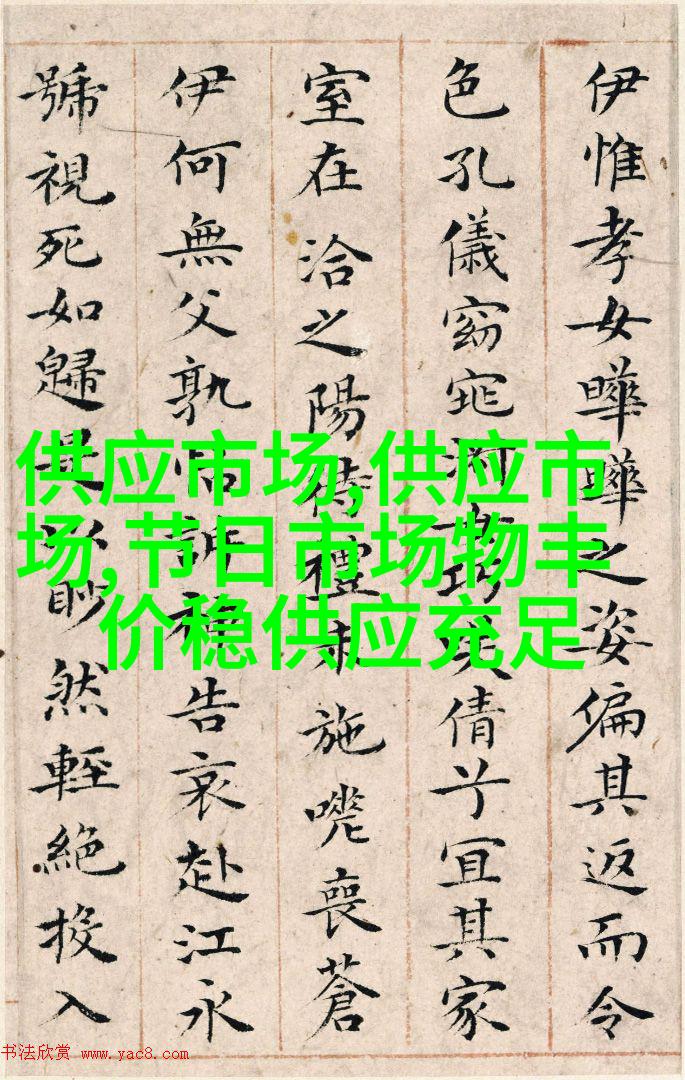 伊惟孝女曄曄之姿偏其返而令
色孔儀窈窕淑女巧笑倩兮宜其家
室在洽之陽待禮未施嗟喪蒼
伊何無父孰怙訴神告哀赴江永
號視死如歸是以眇然輕絕投入
供应市场,供应市
场,节日市场物丰
价稳供应充足
书法欣赏 www.yac8.com